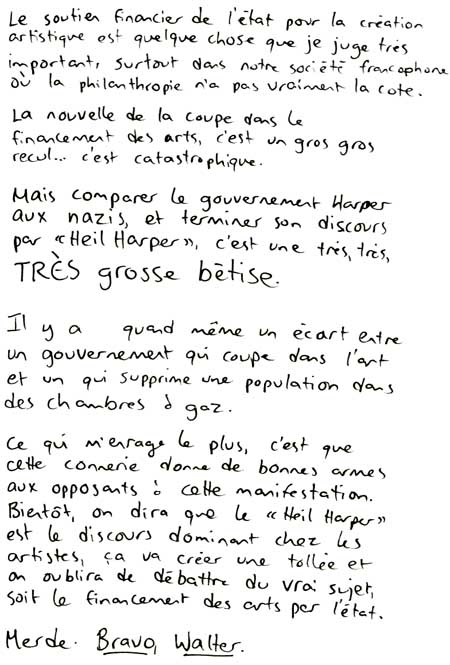 Le soutien financier de l'état pour la création
artistique est quelque chose que je juge très
important, surtout dans notre société francophone
où la philanthropie n'a pas vraiment la cote.
La nouvelle de la coupe dans le
financement des arts, c'est un gros gros
recul... c'est catastrophique.
Mais comparer le gouvernement Harper
aux nazis, et terminer son discours
par «Heil Harper», c'est une très, très,
TRÈS grosse bêtise.
Il y a quand même un écart entre
un gouvernement qui coupe dans l'art
et un qui supprime une population dans
des chambres à gaz.
Ce qui m'enrage le plus, c'est que
cette connerie donne de bonnes armes
aux opposants à cette manifestation.
Bientôt, on dira que le «Heil Harper»
est le discours dominant chez les
artistes, ça va créer une tollée et
on oublira de débattre du vrai sujet,
soit le financement des arts par l'état.
Merde. Bravo, Walter.